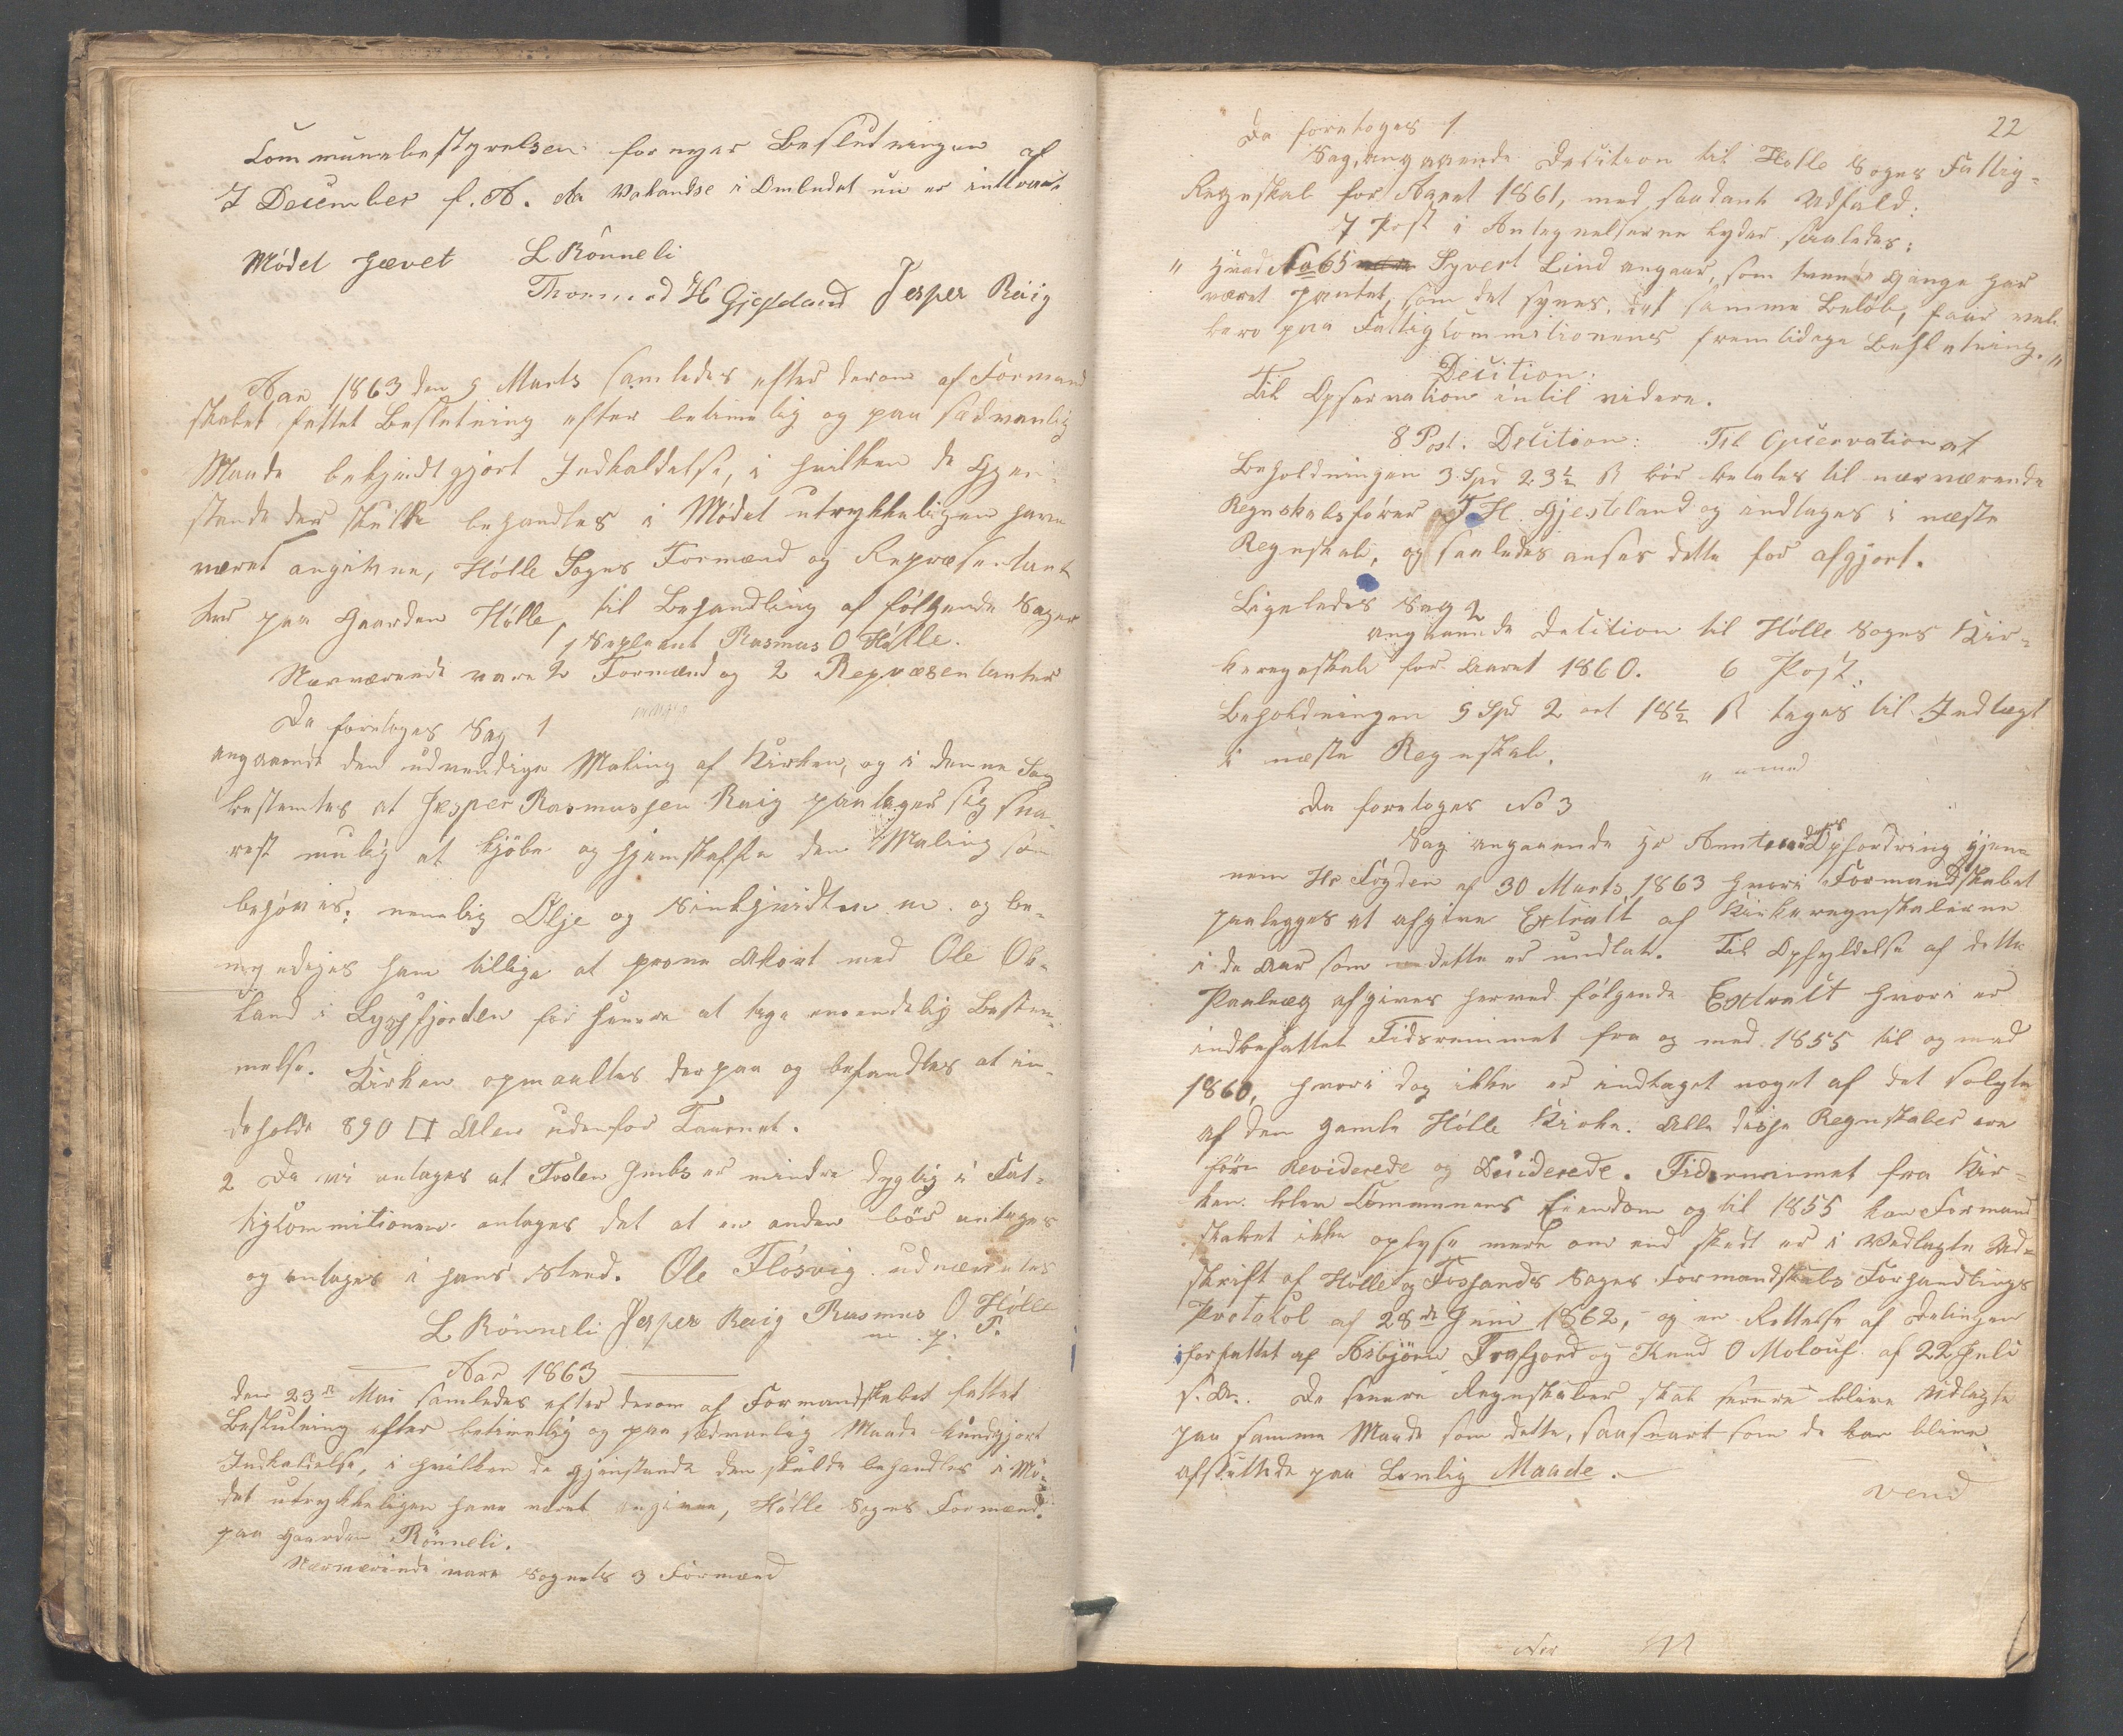 Communebestyrelsen fornyer Beslutningen af
7 December f. A. da Vakandse i Embedet nu er indtraadt
Mødet hævet L Rönneli
H Gjesteland Jesper Réiig
Aar 1863 den 9 Marts samledes efter derom af Formand
skabet fattet Beslutning efter betimelig og paa sædvanlig
Maade bekjendtgjort Indkaldelse, i hvilken de Gjen-
stande der skulde behandles i Mödet utrykkeligen have
været angivne, Hölle Sogns Formænd og Repræsentant
ter paa Gaarden Hölle, til Behandling af fölgende Sager
1 Supleant Rasmus O Hölle.
Nærværende vare 2 Formænd og 2 Repræsentanter
Da foretoges Sag 1
angaaende den udvendige Maling af Kirken, og i denne Sag
bestemtes at Jesper Rasmussen Reiig paatager sig sna-
rest mulig at kjöbe og hjemskaffe den Maling som
behöves; nemlig Olje og Sinkhvidt m. m. og be-
myndiges ham tillige at pröve Akort med Ole Ok-
land i Lysefjorden for senere at tage en endelig Bestem-
melse. Kirken opmaaltes derpaa og befandtes at in-
deholde 890 □ Alen udenfor Taarnet.
2 Da vi antages at Tosten er mindre dygtig i Fat-
tigcommitionen antages det at en anden bör antages
og antages i hans Sted. Ole Flösvig udnævntes
L Rönneli Jesper Reiig Rasmus O Hölle
m. p. P.
Aar 1863
den 23de Mai samledes efter derom af Formandskabet fattet
Beslutning efter betimelig og paa sædvanlig Maade kundgjort
Indkaldelse, i hvilken de Gjenstande der skulde behandles i Mö-
det utrykkeligen have været angivne, Hölle Sogns Formænd
paa Gaarden Rönneli.
Nærværende vare Sognets 3 Formænd
22
Da foretoges 1
Sag, angaaende Decition til Hölle Sogns Fattig-
Regnskab for Aaret 1861, med saadant Udfald:
7 Post i Antegnelserne lyder saaledes:
" Hvad No 65 Syvert Lind angaar, som tvende Gange har
været pantet, som det synes, det samme Belöb, faar vel
bero paa Fattigcommitionens fremtidige Beslutning. "
Decition:
Til Opservation intil videre.
8 Post. Decition: Til Opservation at
Beholdningen 3 Spd 23½ ß bör betales til nærværende
Regnskabsförer T. H. Gjesteland og indtages i næste
Regnskab, og saaledes anses dette for afgjort.
Ligeledes Sag 2
angaaende Decition til Hölle Sogns Kir-
keregnskab for Aaret 1860. 6 Post.
Beholdningen 5 Spd 2 ort 18½ ß tages til Indtægt
i næste Regnskab.
Da foretoges No 3
Sag angaaende Hr Amtmandens Opfordring gjen-
nem Hr Fogden af 30 Marts 1863 hvori Formandskabet
paalegges at afgive Extrakt af Kirkeregnskaberne
i de Aar som dette er undlat. Til Opfyldelse af dette
Paalæg afgives herved fölgende Extrakt hvori er
indbefattet Tidsrummet fra og med 1855 til og med
1860, hvori dog ikke er indtaget noget af det solgte
af den gamle Hölle Kirke. Alle disse Regnskaber ere
för Reviderede og Deciderede. Tidsrummet fra Kir-
ken blev Communens Eiendom og til 1855 kan Formand
skabet ikke oplyse mere om end skedt er i Vedlagte Ud-
skrift af Hölle og Fossands Sognes Formandskabs Forhandlings
Protokol af 28de Juni 1862, og en Rettelse af Delingen
forfattet af Asbjörn Trafjord og Knud O Molouf af 22 Juli
s. A. De senere Regnskaber skal senere blive Udlagte
paa samme Maade som dette, saasnart som de kan blive
afsluttede paa Lovlig Maade.
vend